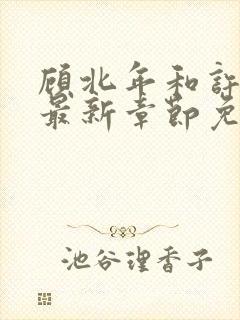 顾北年和许
最新章节免
池谷理香子